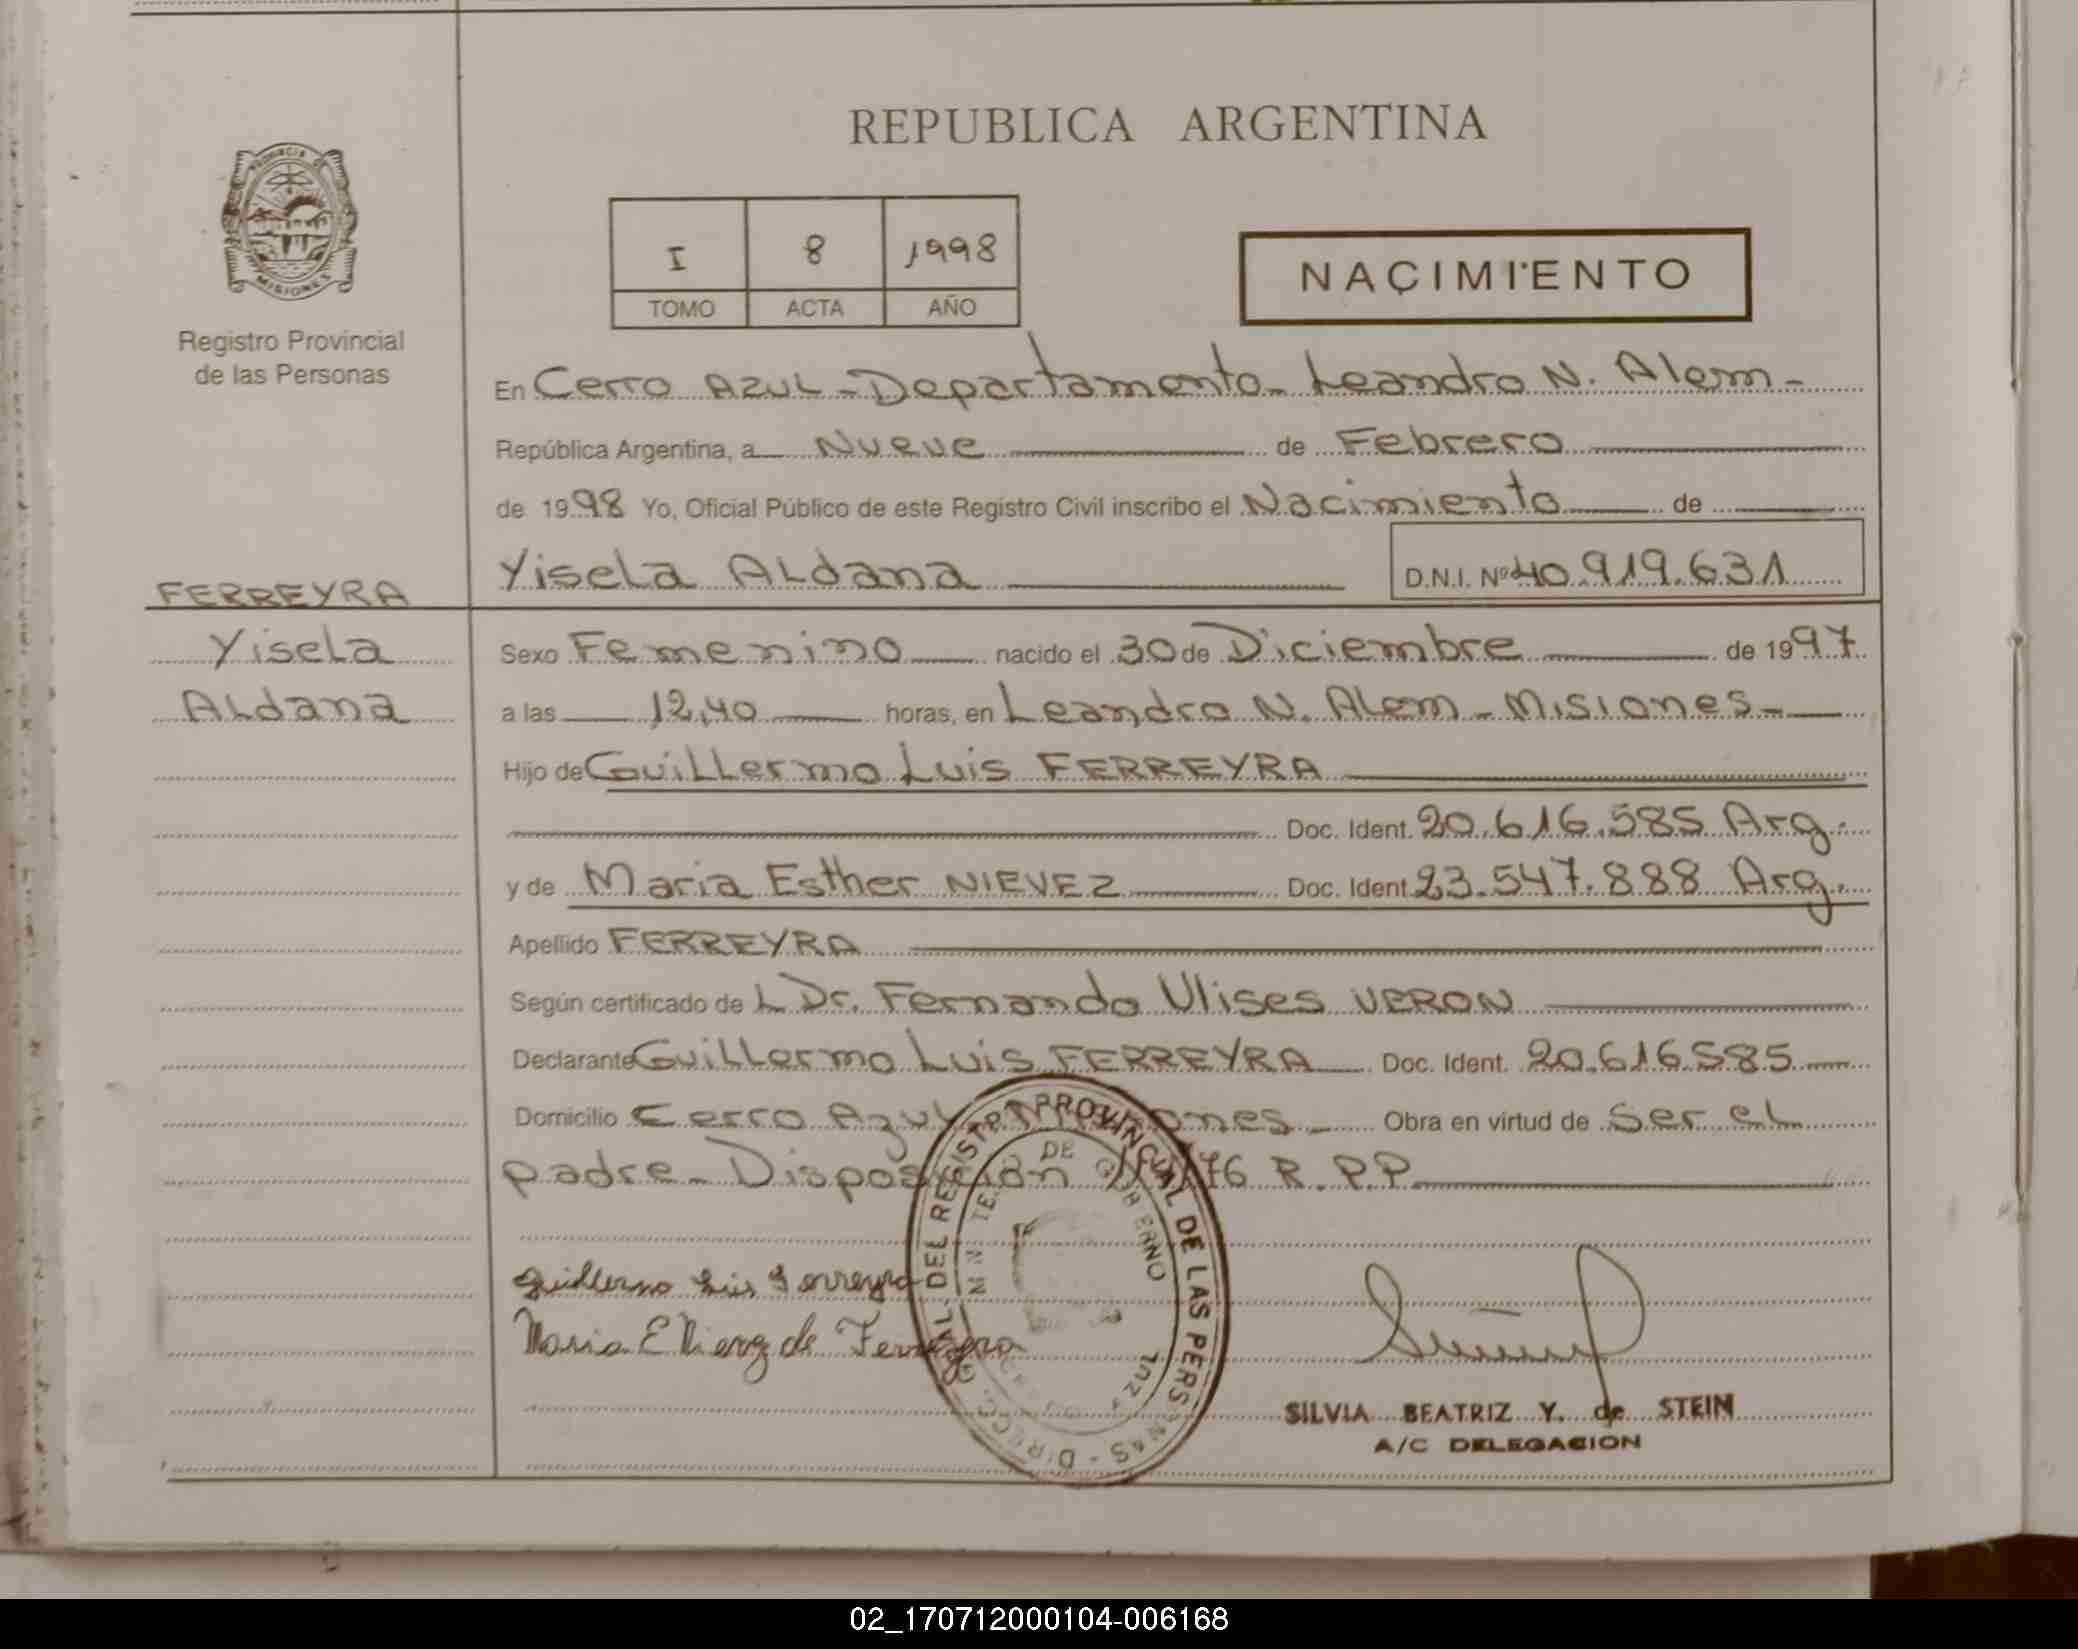 REPUBLICA ARGENTINA
PROVINCIA DE
MISIONES
Registro Provincial
de las Personas
I 8 1998
TOMO ACTA AÑO
NACIMIENTO
En Cerro AZUL - Departamento - Leandro N. Alem -
República Argentina, a Nueve de Febrero
de 1998 Yo, Oficial Público de este Registro Civil inscribo el Nacimiento de
Yisela Aldana D.N.I. Nº 40.919.631
FERREYRA
Yisela
Aldana
Sexo Femenino nacido el 30 de Diciembre de 1997
a las 12,40 horas, en Leandro N. Alem - Misiones -
Hijo de Guillermo Luis FERREYRA
Doc. Ident. 20.616.585 Arg.
y de Maria Esther NIEVEZ Doc. Ident. 23.547.888 Arg.
Apellido FERREYRA
Según certificado de L Dr. Fernando Ulises VERON
Declarante Guillermo Luis FERREYRA Doc. Ident. 20.616.585
Domicilio Cerro Azul - Misiones - Obra en virtud de Ser el
padre - Disposición /76 R.P.P.
Guillermo Luis Ferreyra
Maria E Nievez de Ferreyra
DEL REGISTRO PROVINCIAL DE LAS PERSONAS
DE GOBIERNO
AZUL
SILVIA BEATRIZ Y. de STEIN
A/C DELEGACION
02_170712000104-006168